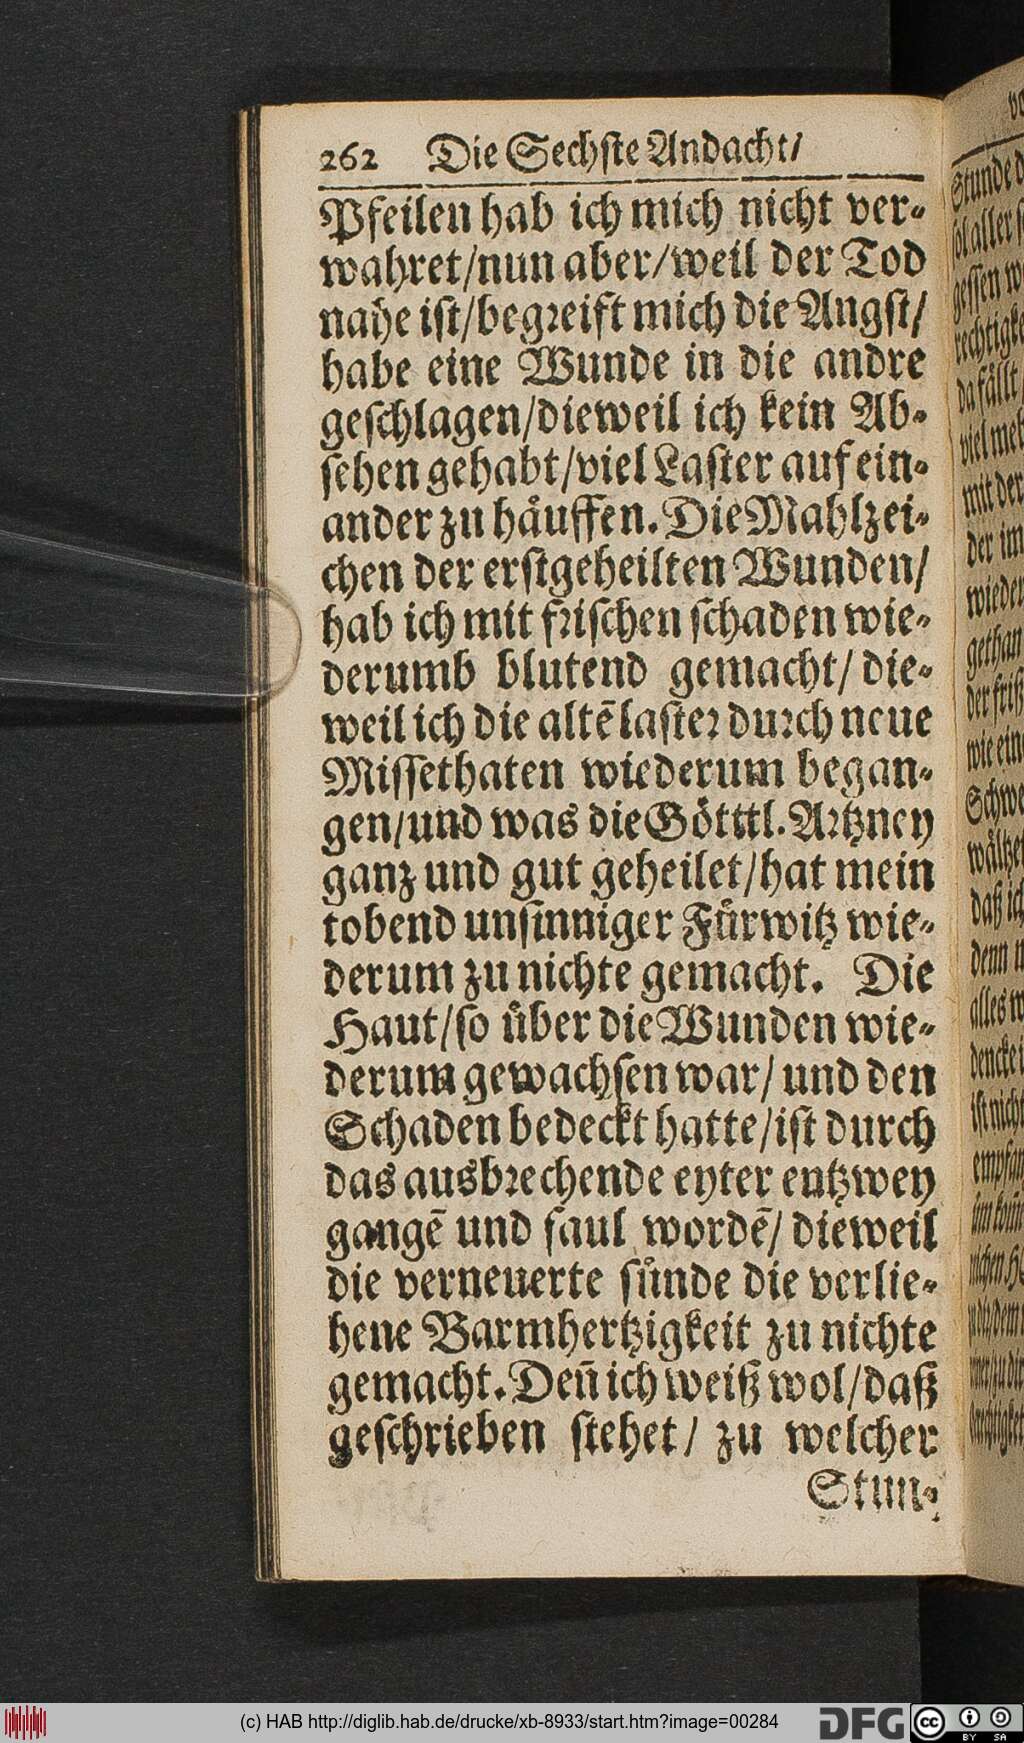 262 Die Sechste Andacht/
Pfeilen hab ich mich nicht ver-
wahret/nun aber/weil der Tod
nahe ist/begreift mich die Angst/
habe eine Wunde in die andre
geschlagen/dieweil ich kein Ab-
sehen gehabt/viel Laster auf ein-
ander zu haͤuffen. Die Mahlzei-
chen der erstgeheilten Wunden/
hab ich mit frischen schaden wie-
derumb blutend gemacht/ die-
weil ich die altē laster durch neue
Missethaten wiederum began-
gen/und was die Goͤtttl. Artzney
ganz und gut geheilet/hat mein
tobend unsinniger Fuͤrwitz wie-
derum zu nichte gemacht. Die
Haut/so uͤber die Wunden wie-
derum gewachsen war/ und den
Schaden bedeckt hatte/ist durch
das ausbrechende eyter entzwey
gangē und faul wordē/ dieweil
die verneuerte suͤnde die verlie-
hene Barmhertzigkeit zu nichte
gemacht. Den̄ ich weiß wol/daß
geschrieben stehet/ zu welcher
Stun-
Stunde
sol aller
gessen
da faͤllt
mit der
der im
wieder
gethan
Schwe
daß ich
denn
alles
ist nicht
(c) HAB http://diglib.hab.de/drucke/xb-8933/start.htm?image=00284
DFG
cc BY SA